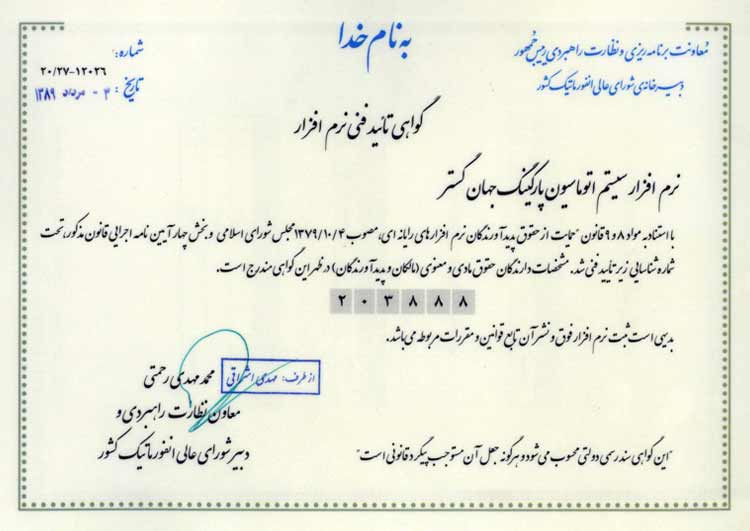 به نام خدا
معاونت برنامه ریزی و نظارت راهبردی رییس جمهور
دبیرخانه‌ی شورای عالی انفورماتیک کشور
شماره:
۲۰/۲۷-۱۲۰۲۶
تاریخ: ۳ - مرداد ۱۳۸۹
گواهی تائید فنی نرم افزار
نرم افزار سیستم اتوماسیون پارکینگ جهان گستر
با استناد به مواد ۸ و ۹ قانون "حمایت از حقوق پدیدآورندگان نرم افزارهای رایانه ای، مصوب ۱۳۷۹/۱۰/۴ مجلس شورای اسلامی و بخش چهار آیین نامه اجرایی قانون مذکور، تحت
شماره شناسایی زیر تأیید فنی شد. مشخصات دارندگان حقوق مادی و معنوی (مالکان و پدیدآورندگان) در ظهر این گواهی مندرج است.
۲۰۳۸۸۸
بدیهی است ثبت نرم افزار فوق و نشر آن تابع قوانین و مقررات مربوطه می‌باشد.
محمد مهدی رحمتی
از طرف: مهدی اشراقی
معاون نظارت راهبردی و
دبیر شورای عالی انفورماتیک کشور
"این گواهی سند رسمی دولتی محسوب می‌شود و هرگونه جعل آن مستوجب پیگرد قانونی است"